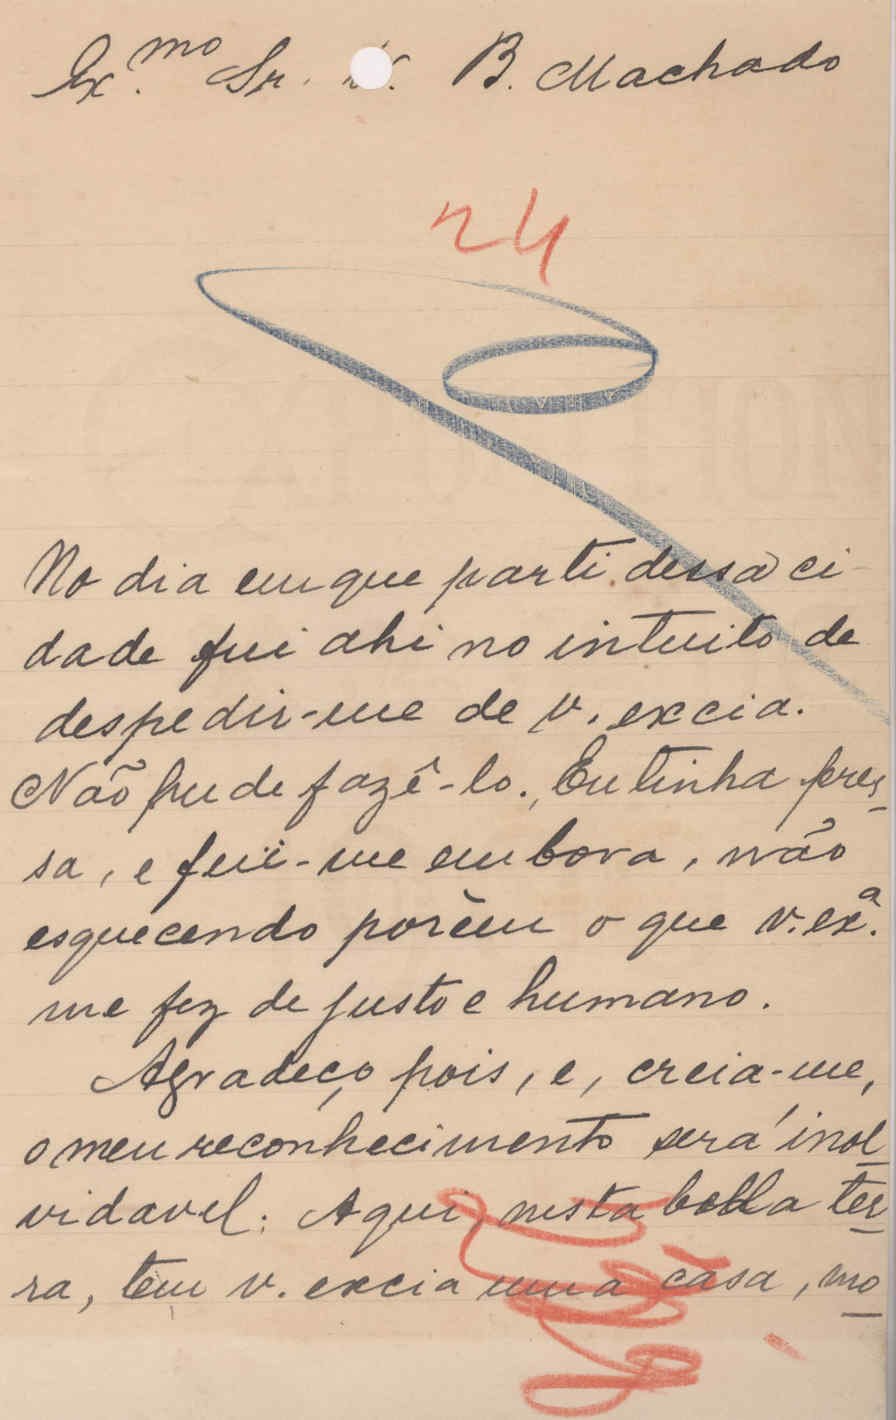 Ex.mo Sr. B. Machado
24
No dia em que parti dessa ci-
dade fui ahi no intuito de
despedir-me de v. excia.
Não pude fazê-lo. Eu tinha pres-
sa, e fui-me embora, não
esquecendo porèm o que v. exª.
me fez de justo e humano.
Agradeço, pois, e, creia-me,
o meu reconhecimento será inol-
vidavel. Aqui, nesta bella ter-
ra, tem v. excia uma casa, mo-